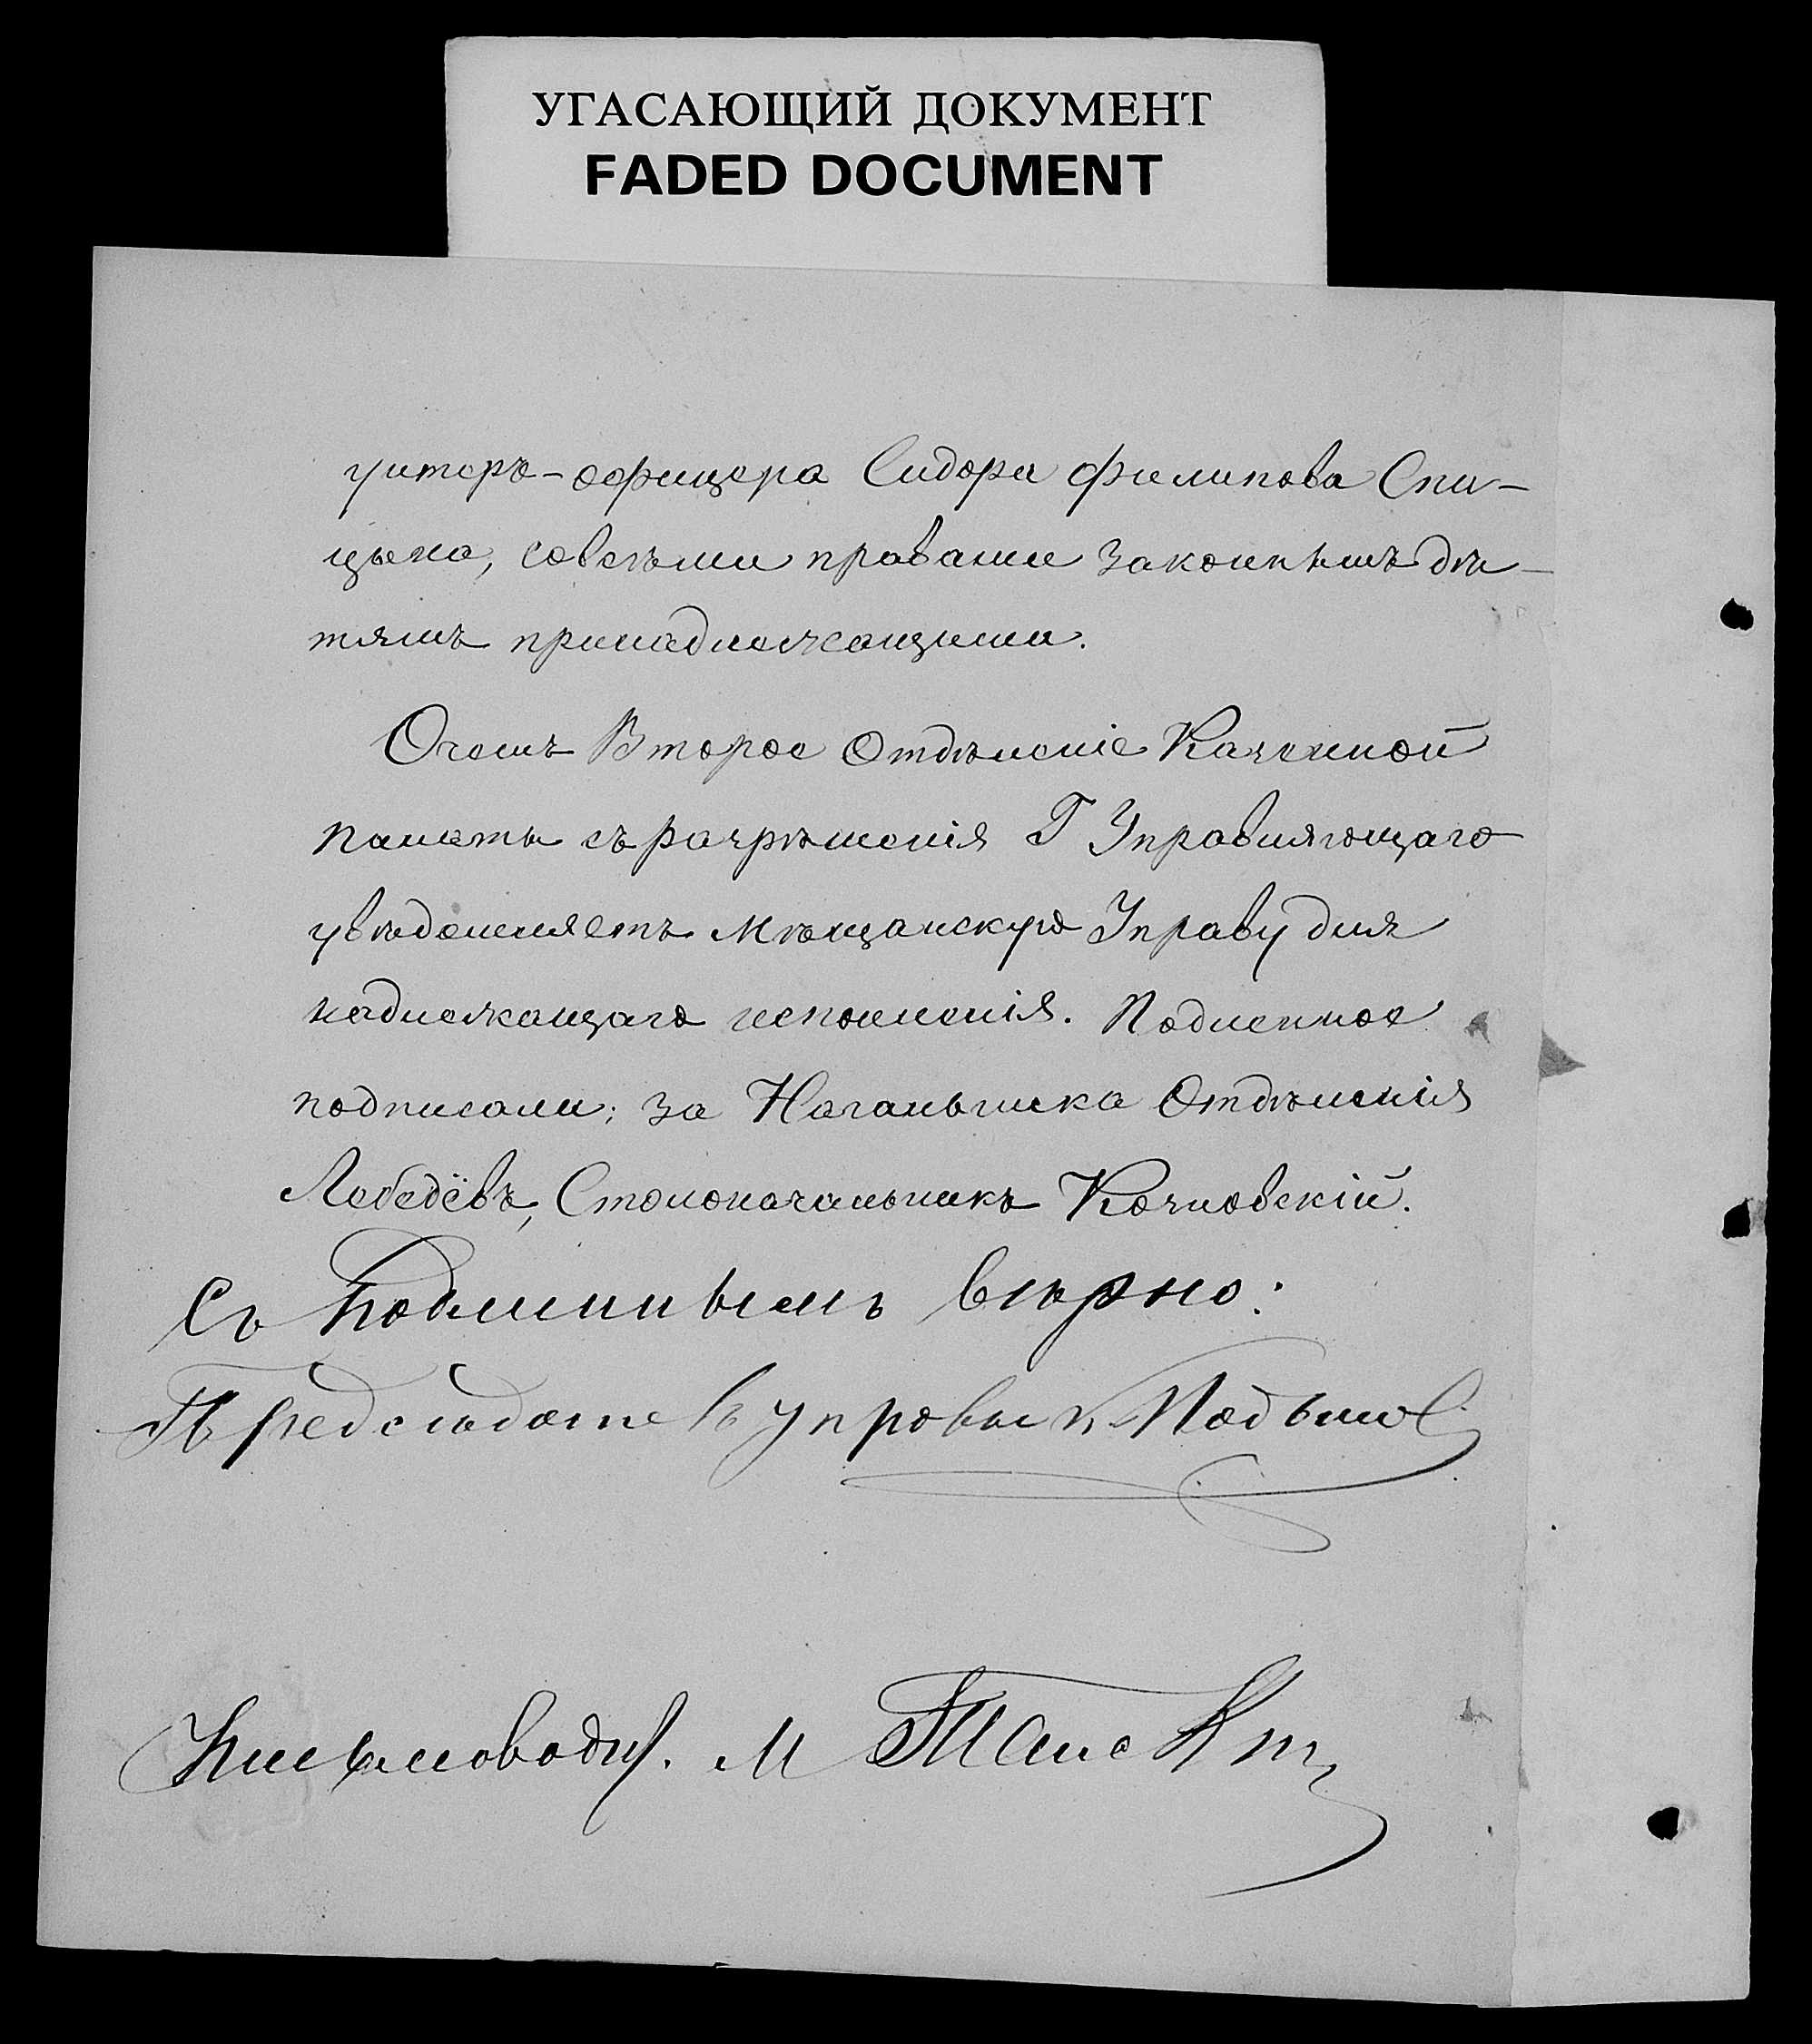 УГАСАЮЩИЙ ДОКУМЕНТ
FADED DOCUMENT
унтеръ-офицера Сидора Филипова Спи-
цына, совсѣми правами законнымъ дѣ-
тямъ принадлежащими.
Очемъ Второе Отдѣленіе Казенной
Палаты съ разрѣшенія Г Управляющаго
увѣдомляетъ Мѣщанскую Управу для
надлежащаго исполненія. Подлинное
подписали; за Начальника Отдѣленія
Лебедёвъ, Столоначальникъ Козловскій.
Съ Подлиннымъ вѣрно:
Предсѣдатель управы
Письмоводит. М